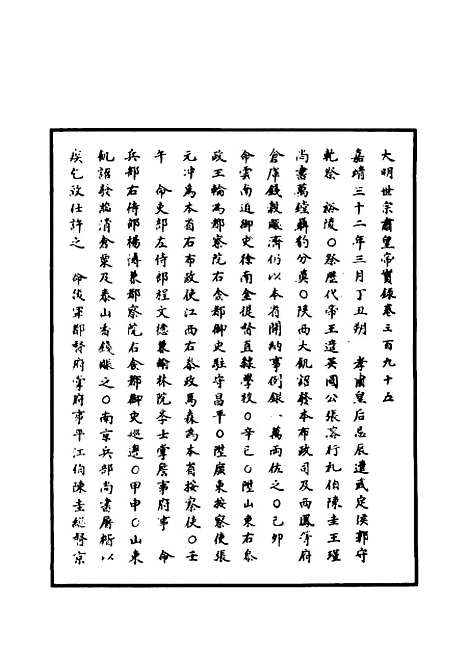 大明世宗肅皇帝實錄卷三百九十五
嘉靖三十二年三月丁丑朔　孝肅皇后忌辰遣武定侯郭守
乾祭　裕陵○祭歷代帝王遣英國公張溶行礼伯陳圭王瑾
尚書萬鏜聶豹分奠○陝西大飢詔發本布政司及西鳳等府
倉庫錢穀賑濟仍以本省開納事例銀一萬兩佐之○己卯
命雲南道御史徐南金提督直隸學校○辛巳○陞山東右叅
政王輪為都察院右僉都御史駐守昌平○陞廣東按察使張
元冲為本省右布政使江西右叅政馬森為本省按察使○壬
午　命吏部左侍郎程文德兼翰林院學士掌詹事府事　命
兵部右侍郎楊博兼都察院右僉都御史巡邊○甲申○山東
飢詔發臨清倉粟及泰山香錢賑之○南京兵部尚書屠楷以
疾乞致仕許之　命後軍都督府掌府事平江伯陳圭總督京